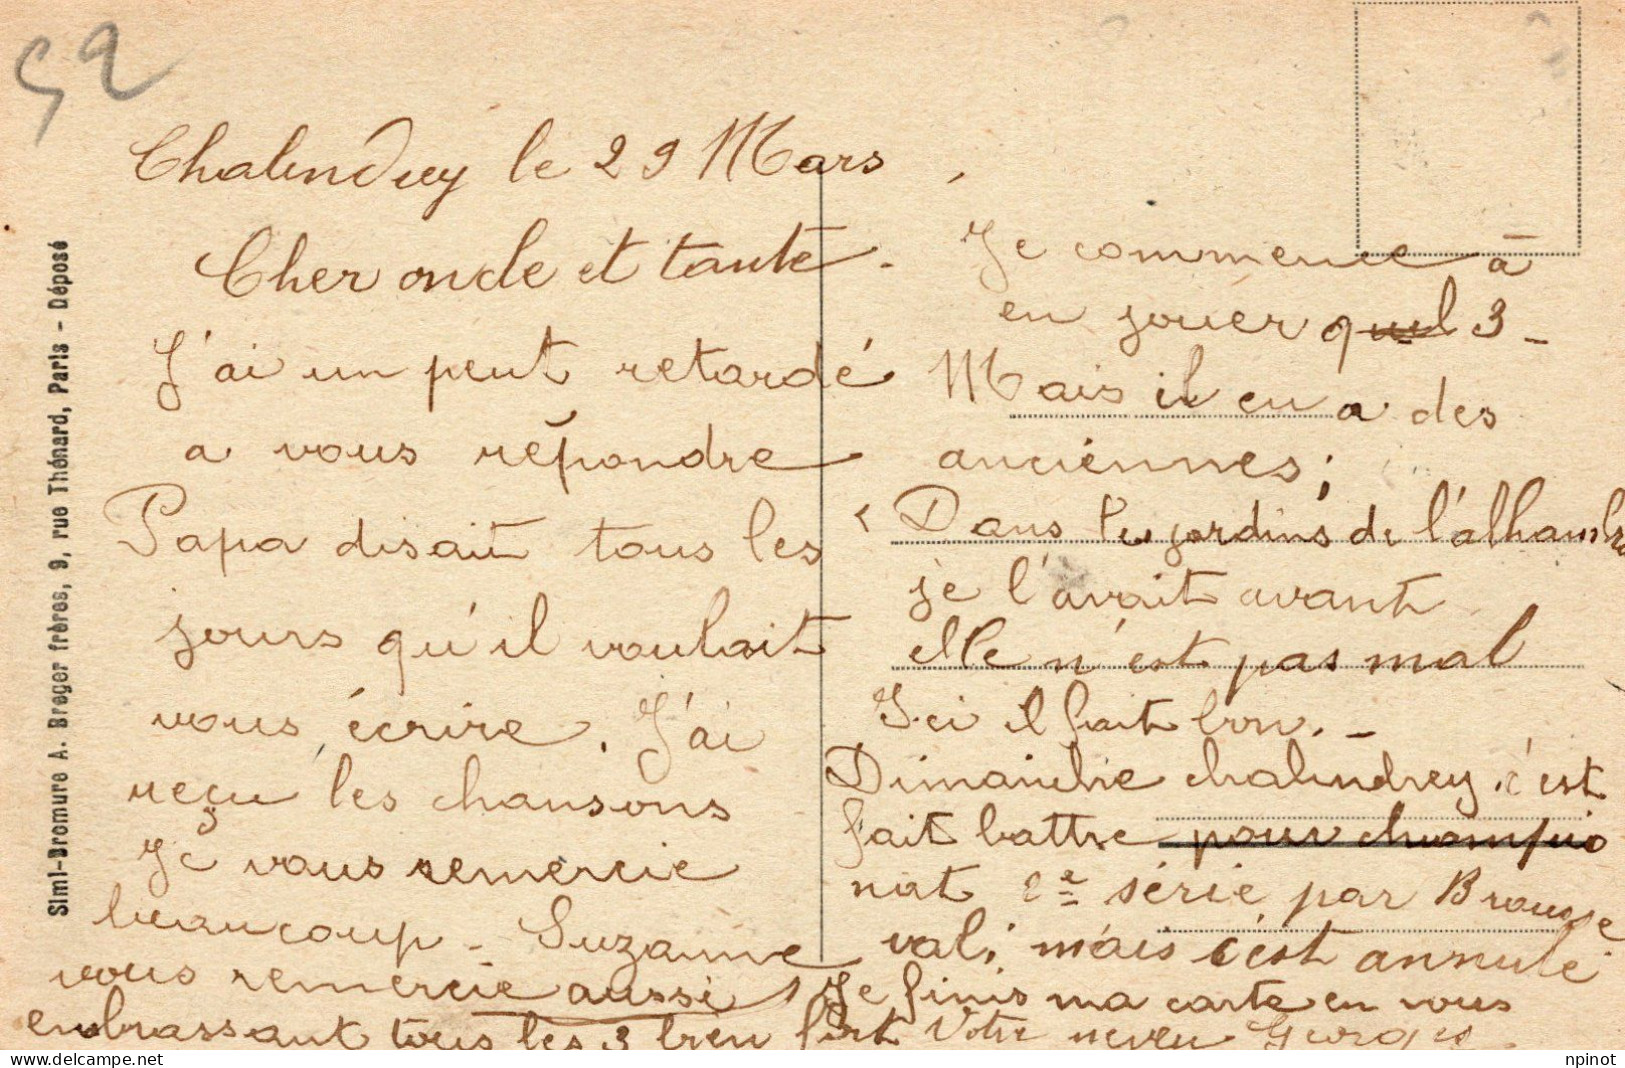 52
Chalindrey le 29 Mars
Cher oncle et tante.
J'ai un peut retardé
a vous répondre
Papa disait tous les
jours qu'il voulait
vous écrire. J'ai
reçu les chansons
Je vous remercie
beaucoup - Suzanne
vous remercie aussi
Je commence à
en jouer quel 3 -
Mais il en a des
anciennes;
Dans les jardins de l'alhambra
je l'avait avant
elle n'est pas mal
Ici il fait bon. -
Dimanche chalindrey c'est
fait battre pour champio
nat 2e série par Brousse
val; mais c'est annulé
Je finis ma carte en vous
embrassant tous les 3 bien fort Votre neveu Georges.
Simi-Bromure A. Breger frères, 9, rue Thénard, Paris - Déposé
npinot